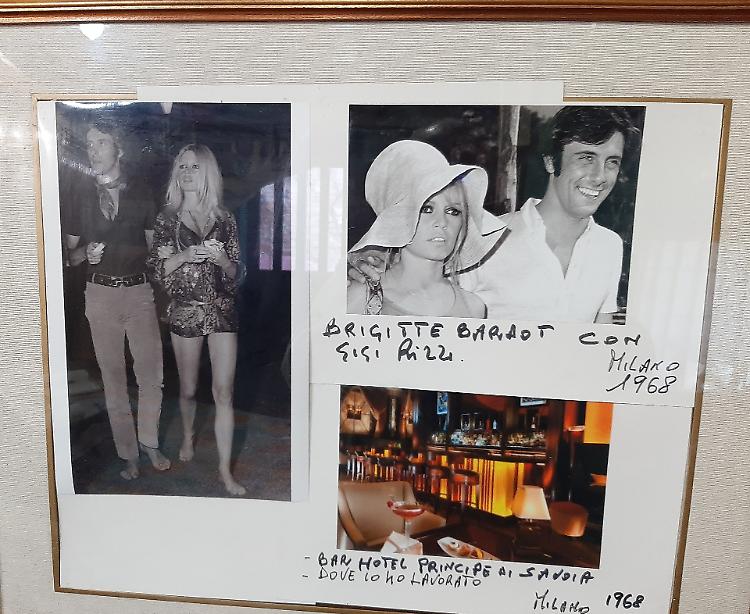 BRIGITTE BARDOT CON
GIGI Rizzi.
MILANO
1968
- BAR HOTEL PRINCIPE DI SAVOIA
- DOVE IO HO LAVORATO
MILANO 1968